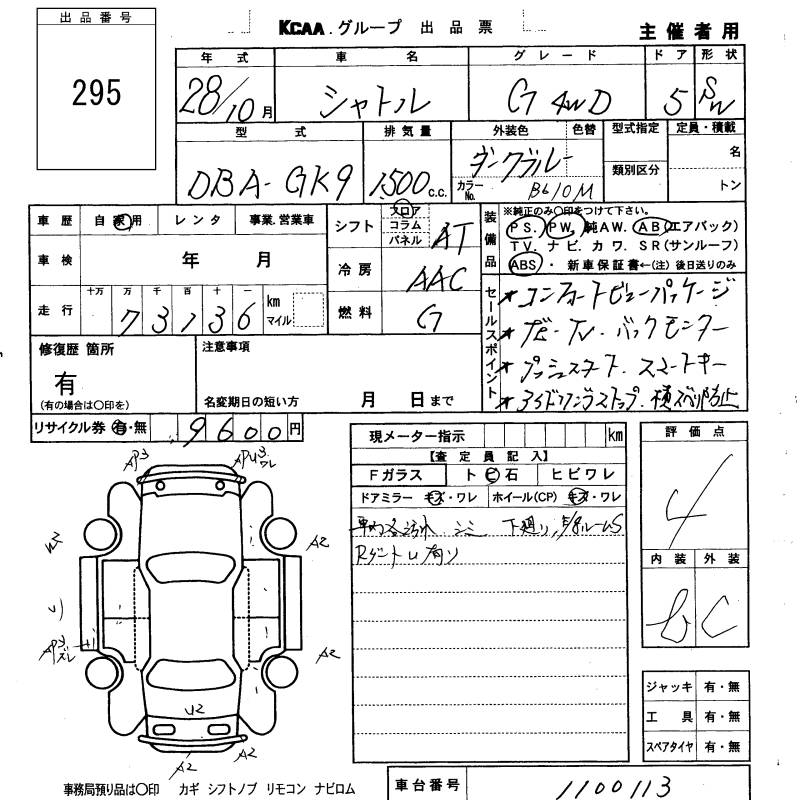 出品番号
295
KCAA.グループ 出品票
主催者用
年式 車名 グレード ドア 形状
28/10月 シャトル G 4WD 5 SW
型式 排気量 外装色 色替 型式指定 定員・積載
DBA-GK9 1500c.c. ダークブルー
カラーNo. B610M
類別区分
名
トン
車歴 自家用 レンタ 事業.営業車
車検 年 月
走行 十万 万 千 百 十 一
73136 km マイル
シフト フロア コラム パネル AT
冷房 AAC
燃料 G
装備品
※純正のみ○印をつけて下さい。
PS. PW. 純AW. AB(エアバック)
TV. ナビ. カワ. SR(サンルーフ)
ABS・新車保証書←(注)後日送りのみ
セールスポイント
★コンフォートビューパッケージ
★ナビ・TV・バックモニター
★プッシュスタート.スマートキー
★アイドリングストップ.横スベリ防止
修復歴 箇所
有
(有の場合は○印を)
注意事項
名変期日の短い方 月 日まで
リサイクル券 有・無 9600円
現メーター指示 km
【査定員記入】
Fガラス トビ石 ヒビワレ
ドアミラー キズ・ワレ ホイール(CP) キズ・ワレ
車内 汚れ シミ 下廻り.
Rゲート U有り
評価点
4
内装 外装
b C
AP3
APU3
ワレ
W2
A2
U1
AP3
ズレ
A2
U2
A2
A2
ジャッキ 有・無
工具 有・無
スペアタイヤ 有・無
事務局預り品は○印 カギ シフトノブ リモコン ナビロム
車台番号 1100113